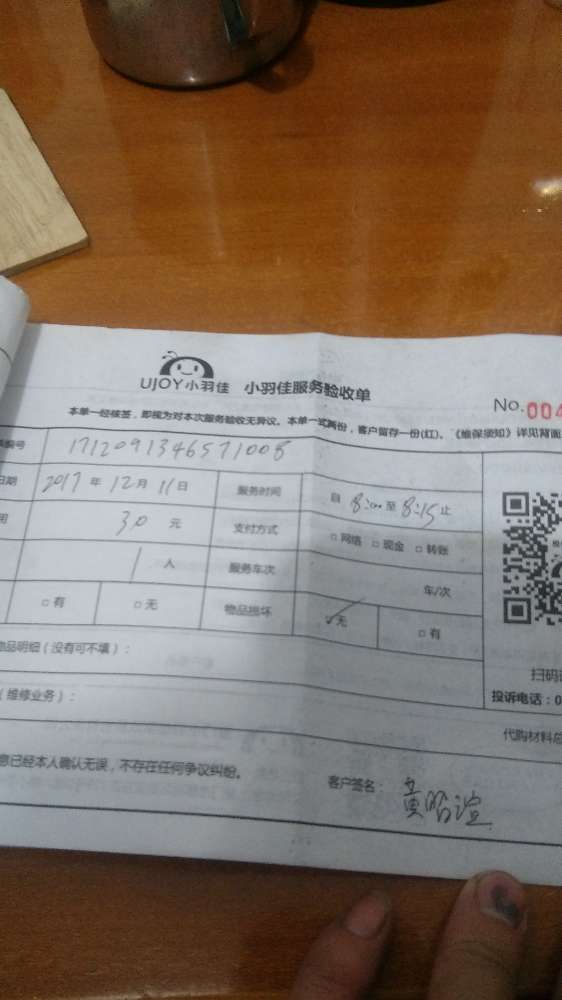 UJOY小羽佳 小羽佳服务验收单
No.004
本单一经核签，即视为对本次服务验收无异议。本单一式两份，客户留存一份(红)。《维保须知》详见背面
编号 1712091346571008
日期 2017 年 12 月 11 日 服务时间 自 8:00 至 8:15 止
用 30 元 支付方式 □ 网络 □ 现金 □ 转账
1 人 服务车次 车/次
□ 有 □ 无 物品损坏 ☑无 □ 有
物品明细（没有可不填）：
扫码
（维修业务）：
投诉电话：0
代购材料总
息已经本人确认无误，不存在任何争议纠纷。
客户签名：